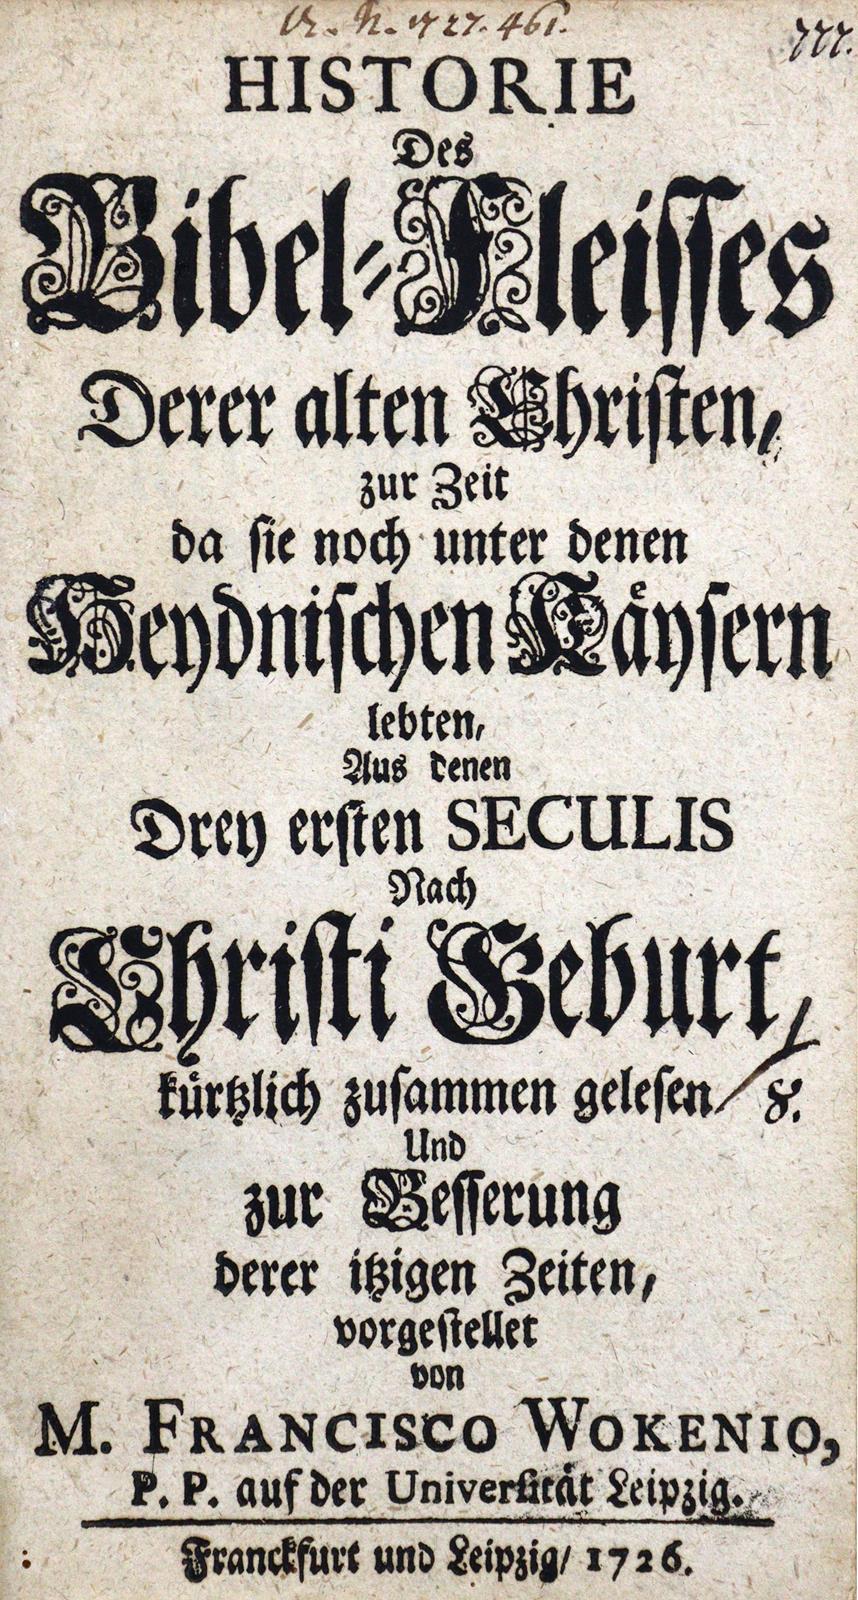 A. N. 1727. 461.
777.
HISTORIE
Des
Bibel-Fleisses
Derer alten Christen,
zur Zeit
da sie noch unter denen
Heydnischen Käysern
lebten,
Aus denen
Drey ersten SECULIS
Nach
Christi Geburt,
kürtzlich zusammen gelesen 8.
Und
zur Besserung
derer itzigen Zeiten,
vorgestellet
von
M. FRANCISCO WOKENIO,
P. P. auf der Universität Leipzig.
Franckfurt und Leipzig/ 1726.